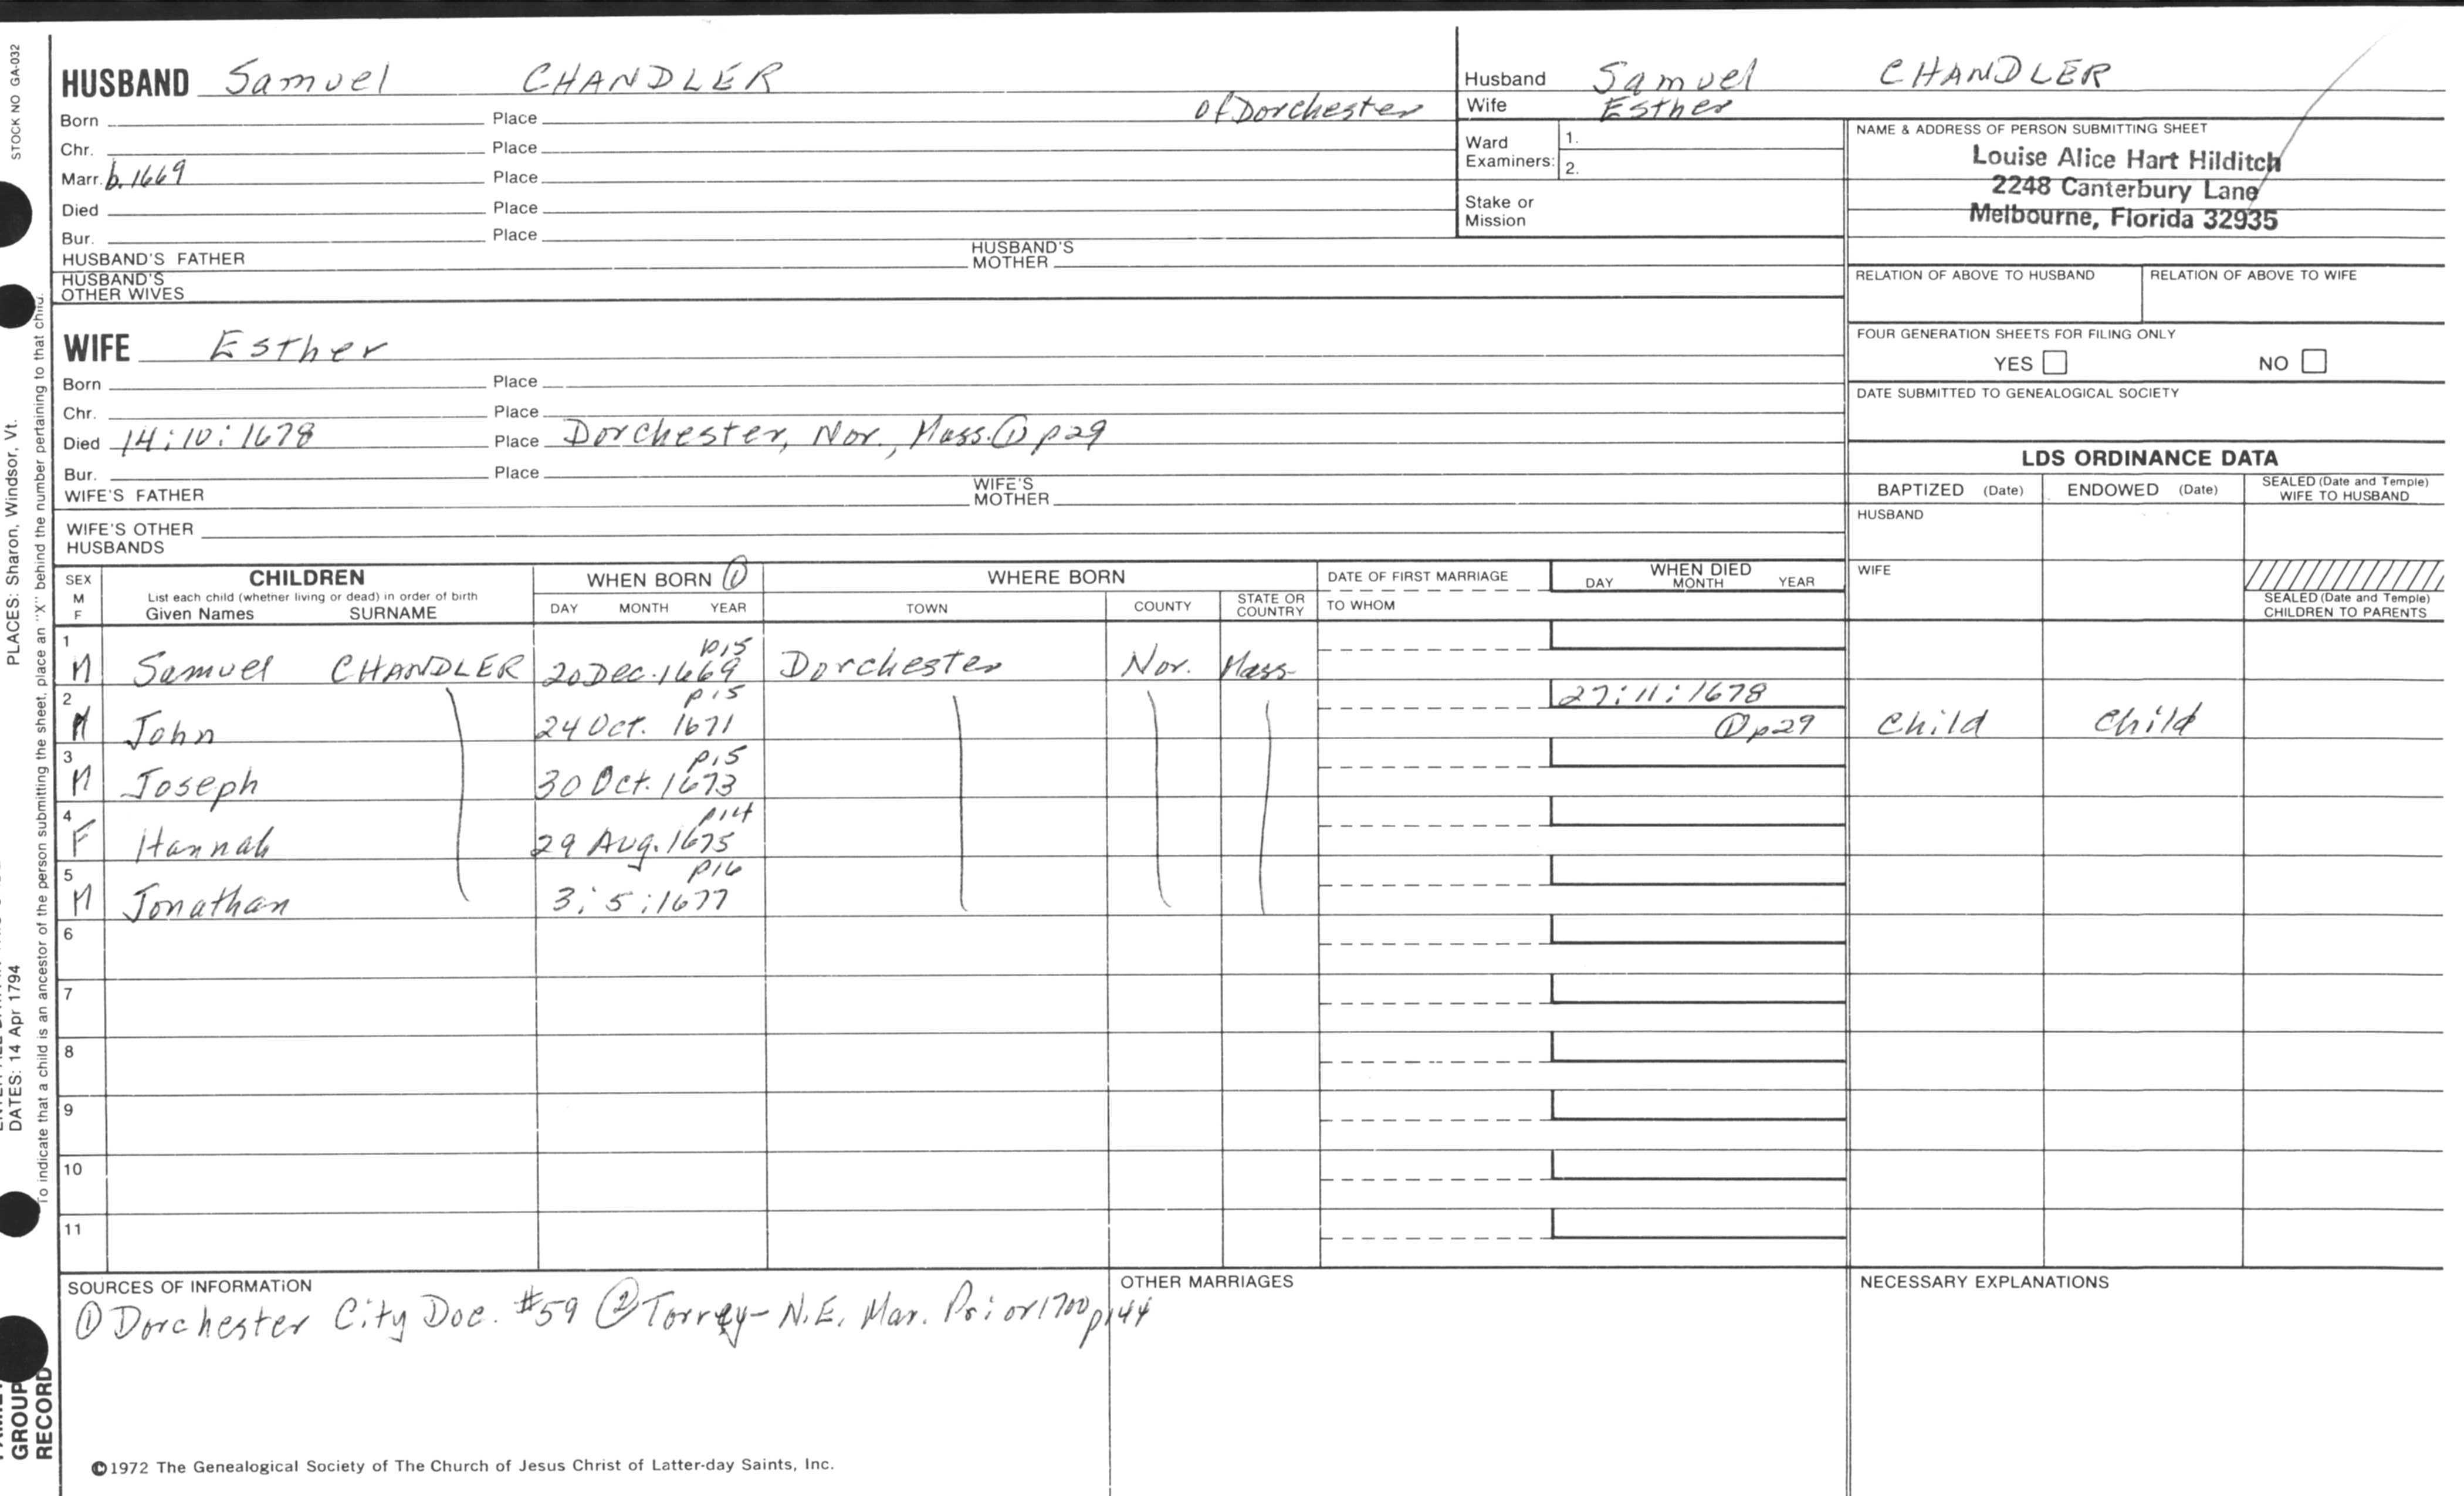 STOCK NO GA-032
HUSBAND Samuel CHANDLER
Born Place of Dorchester
Chr. Place
Marr. b. 1669 Place
Died Place
Bur. Place
HUSBAND'S FATHER HUSBAND'S MOTHER
HUSBAND'S OTHER WIVES
Husband Samuel CHANDLER
Wife Esther
Ward Examiners: 1.
2.
Stake or Mission
NAME & ADDRESS OF PERSON SUBMITTING SHEET
Louise Alice Hart Hilditch
2248 Canterbury Lane
Melbourne, Florida 32935
RELATION OF ABOVE TO HUSBAND RELATION OF ABOVE TO WIFE
FOUR GENERATION SHEETS FOR FILING ONLY
YES NO
DATE SUBMITTED TO GENEALOGICAL SOCIETY
WIFE Esther
Born Place
Chr. Place
Died 14:10:1678 Place Dorchester, Nor., Mass. ① p29
Bur. Place
WIFE'S FATHER WIFE'S MOTHER
WIFE'S OTHER HUSBANDS
LDS ORDINANCE DATA
BAPTIZED (Date) ENDOWED (Date) SEALED (Date and Temple) WIFE TO HUSBAND
HUSBAND
WIFE
SEALED (Date and Temple) CHILDREN TO PARENTS
SEX M F
CHILDREN
List each child (whether living or dead) in order of birth
Given Names SURNAME
WHEN BORN ①
DAY MONTH YEAR
WHERE BORN
TOWN COUNTY STATE OR COUNTRY
DATE OF FIRST MARRIAGE
TO WHOM
WHEN DIED
DAY MONTH YEAR
1 p15
M Samuel CHANDLER 20 Dec. 1669 Dorchester Nor. Mass.
2 p15 27:11:1678
M John 24 Oct. 1671 ① p29 Child Child
3 p15
M Joseph 30 Oct. 1673
4 p14
F Hannah 29 Aug. 1675
5 p16
M Jonathan 3:5:1677
6
7
8
9
10
11
SOURCES OF INFORMATION
① Dorchester City Doc. #59 ② Torrey- N.E. Mar. Prior 1700 p144
OTHER MARRIAGES
NECESSARY EXPLANATIONS
©1972 The Genealogical Society of The Church of Jesus Christ of Latter-day Saints, Inc.
PLACES: Sharon, Windsor, Vt.
DATES: 14 Apr 1794
To indicate that a child is an ancestor of the person submitting the sheet, place an "X" behind the number pertaining to that child.
GROUP
RECORD